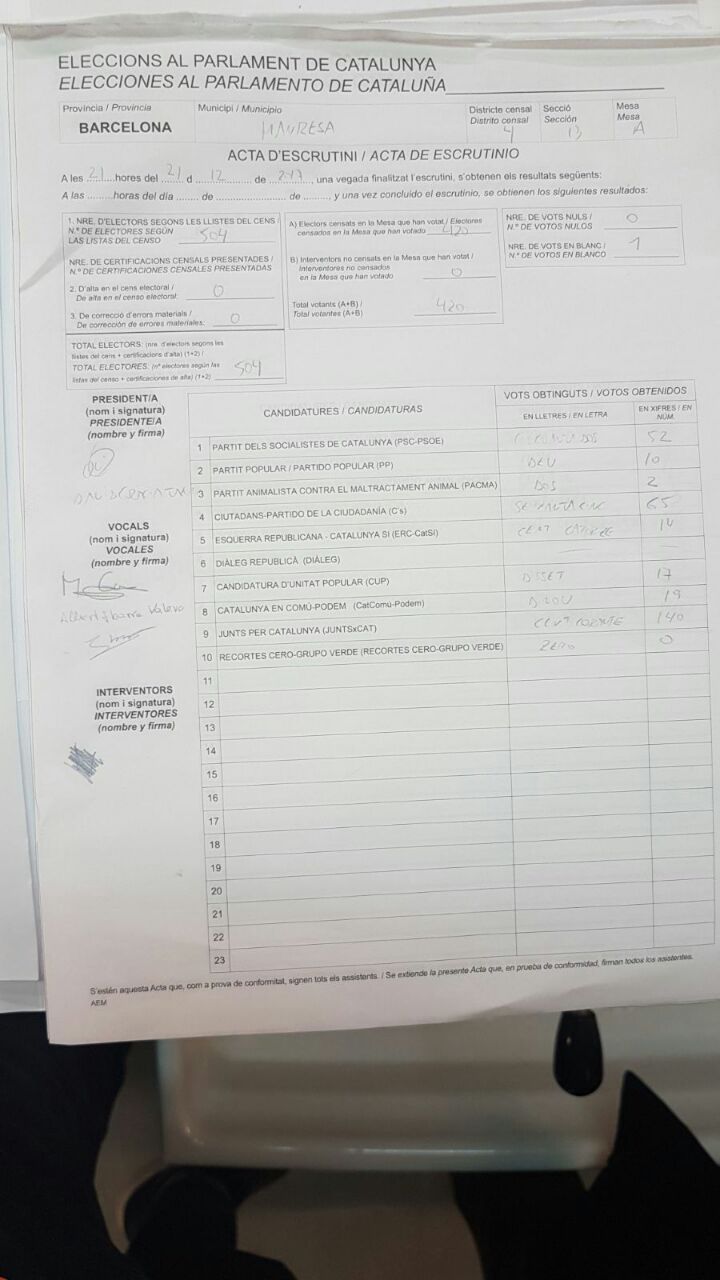 ELECCIONS AL PARLAMENT DE CATALUNYA
ELECCIONES AL PARLAMENTO DE CATALUÑA
Província / Provincia
BARCELONA
Municipi / Municipio
MANRESA
Districte censal
Distrito censal
4
Secció
Sección
13
Mesa
Mesa
A
ACTA D'ESCRUTINI / ACTA DE ESCRUTINIO
A les 21 hores del 21 d 12 de 2017, una vegada finalitzat l'escrutini, s'obtenen els resultats següents:
A las ......... horas del día ....... de ....................... de ........, y una vez concluido el escrutinio, se obtienen los siguientes resultados:
1. NRE. D'ELECTORS SEGONS LES LLISTES DEL CENS /
N.º DE ELECTORES SEGÚN
LAS LISTAS DEL CENSO 504
NRE. DE CERTIFICACIONS CENSALS PRESENTADES /
N.º DE CERTIFICACIONES CENSALES PRESENTADAS
2. D'alta en el cens electoral /
De alta en el censo electoral: 0
3. De correcció d'errors materials /
De corrección de errores materiales: 0
TOTAL ELECTORS: (nre. d'electors segons les
llistes del cens + certificacions d'alta) (1+2) /
TOTAL ELECTORES: (nº electores según las
listas del censo + certificaciones de alta) (1+2) 504
A) Electors censats en la Mesa que han votat / Electores
censados en la Mesa que han votado 420
B) Interventors no censats en la Mesa que han votat /
Interventores no censados
en la Mesa que han votado 0
Total votants (A+B) /
Total votantes (A+B) 420
NRE. DE VOTS NULS /
N.º DE VOTOS NULOS 0
NRE. DE VOTS EN BLANC /
N.º DE VOTOS EN BLANCO 1
PRESIDENT/A
(nom i signatura)
PRESIDENTE/A
(nombre y firma)
VOCALS
(nom i signatura)
VOCALES
(nombre y firma)
Albert Ibarra Valero
INTERVENTORS
(nom i signatura)
INTERVENTORES
(nombre y firma)
CANDIDATURES / CANDIDATURAS
VOTS OBTINGUTS / VOTOS OBTENIDOS
EN LLETRES / EN LETRA
EN XIFRES / EN NÚM.
1 PARTIT DELS SOCIALISTES DE CATALUNYA (PSC-PSOE) 52
2 PARTIT POPULAR / PARTIDO POPULAR (PP) DEU 10
3 PARTIT ANIMALISTA CONTRA EL MALTRACTAMENT ANIMAL (PACMA) DOS 2
4 CIUTADANS-PARTIDO DE LA CIUDADANÍA (C's) 65
5 ESQUERRA REPUBLICANA - CATALUNYA SI (ERC-CatSí) CENT CATORZE 14
6 DIÀLEG REPUBLICÀ (DIÀLEG)
7 CANDIDATURA D'UNITAT POPULAR (CUP) DISSET 17
8 CATALUNYA EN COMÚ-PODEM (CatComú-Podem) DINOU 19
9 JUNTS PER CATALUNYA (JUNTSxCAT) 140
10 RECORTES CERO-GRUPO VERDE (RECORTES CERO-GRUPO VERDE) ZERO 0
11
12
13
14
15
16
17
18
19
20
21
22
23
S'estén aquesta Acta que, com a prova de conformitat, signen tots els assistents. / Se extiende la presente Acta que, en prueba de conformidad, firman todos los asistentes.
AEM